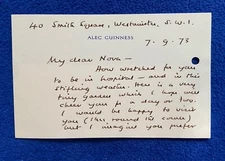 40 Smith Square, Westminster, S.W.1.
ALEC GUINNESS
7-9-73
My dear Nova —
How wretched for you
to be in hospital — and in this
stifling weather. Here is a very
tiny garden which I hope will
cheer you for a day or two.
I would be happy to visit
you (this round the corner)
but I imagine you prefer